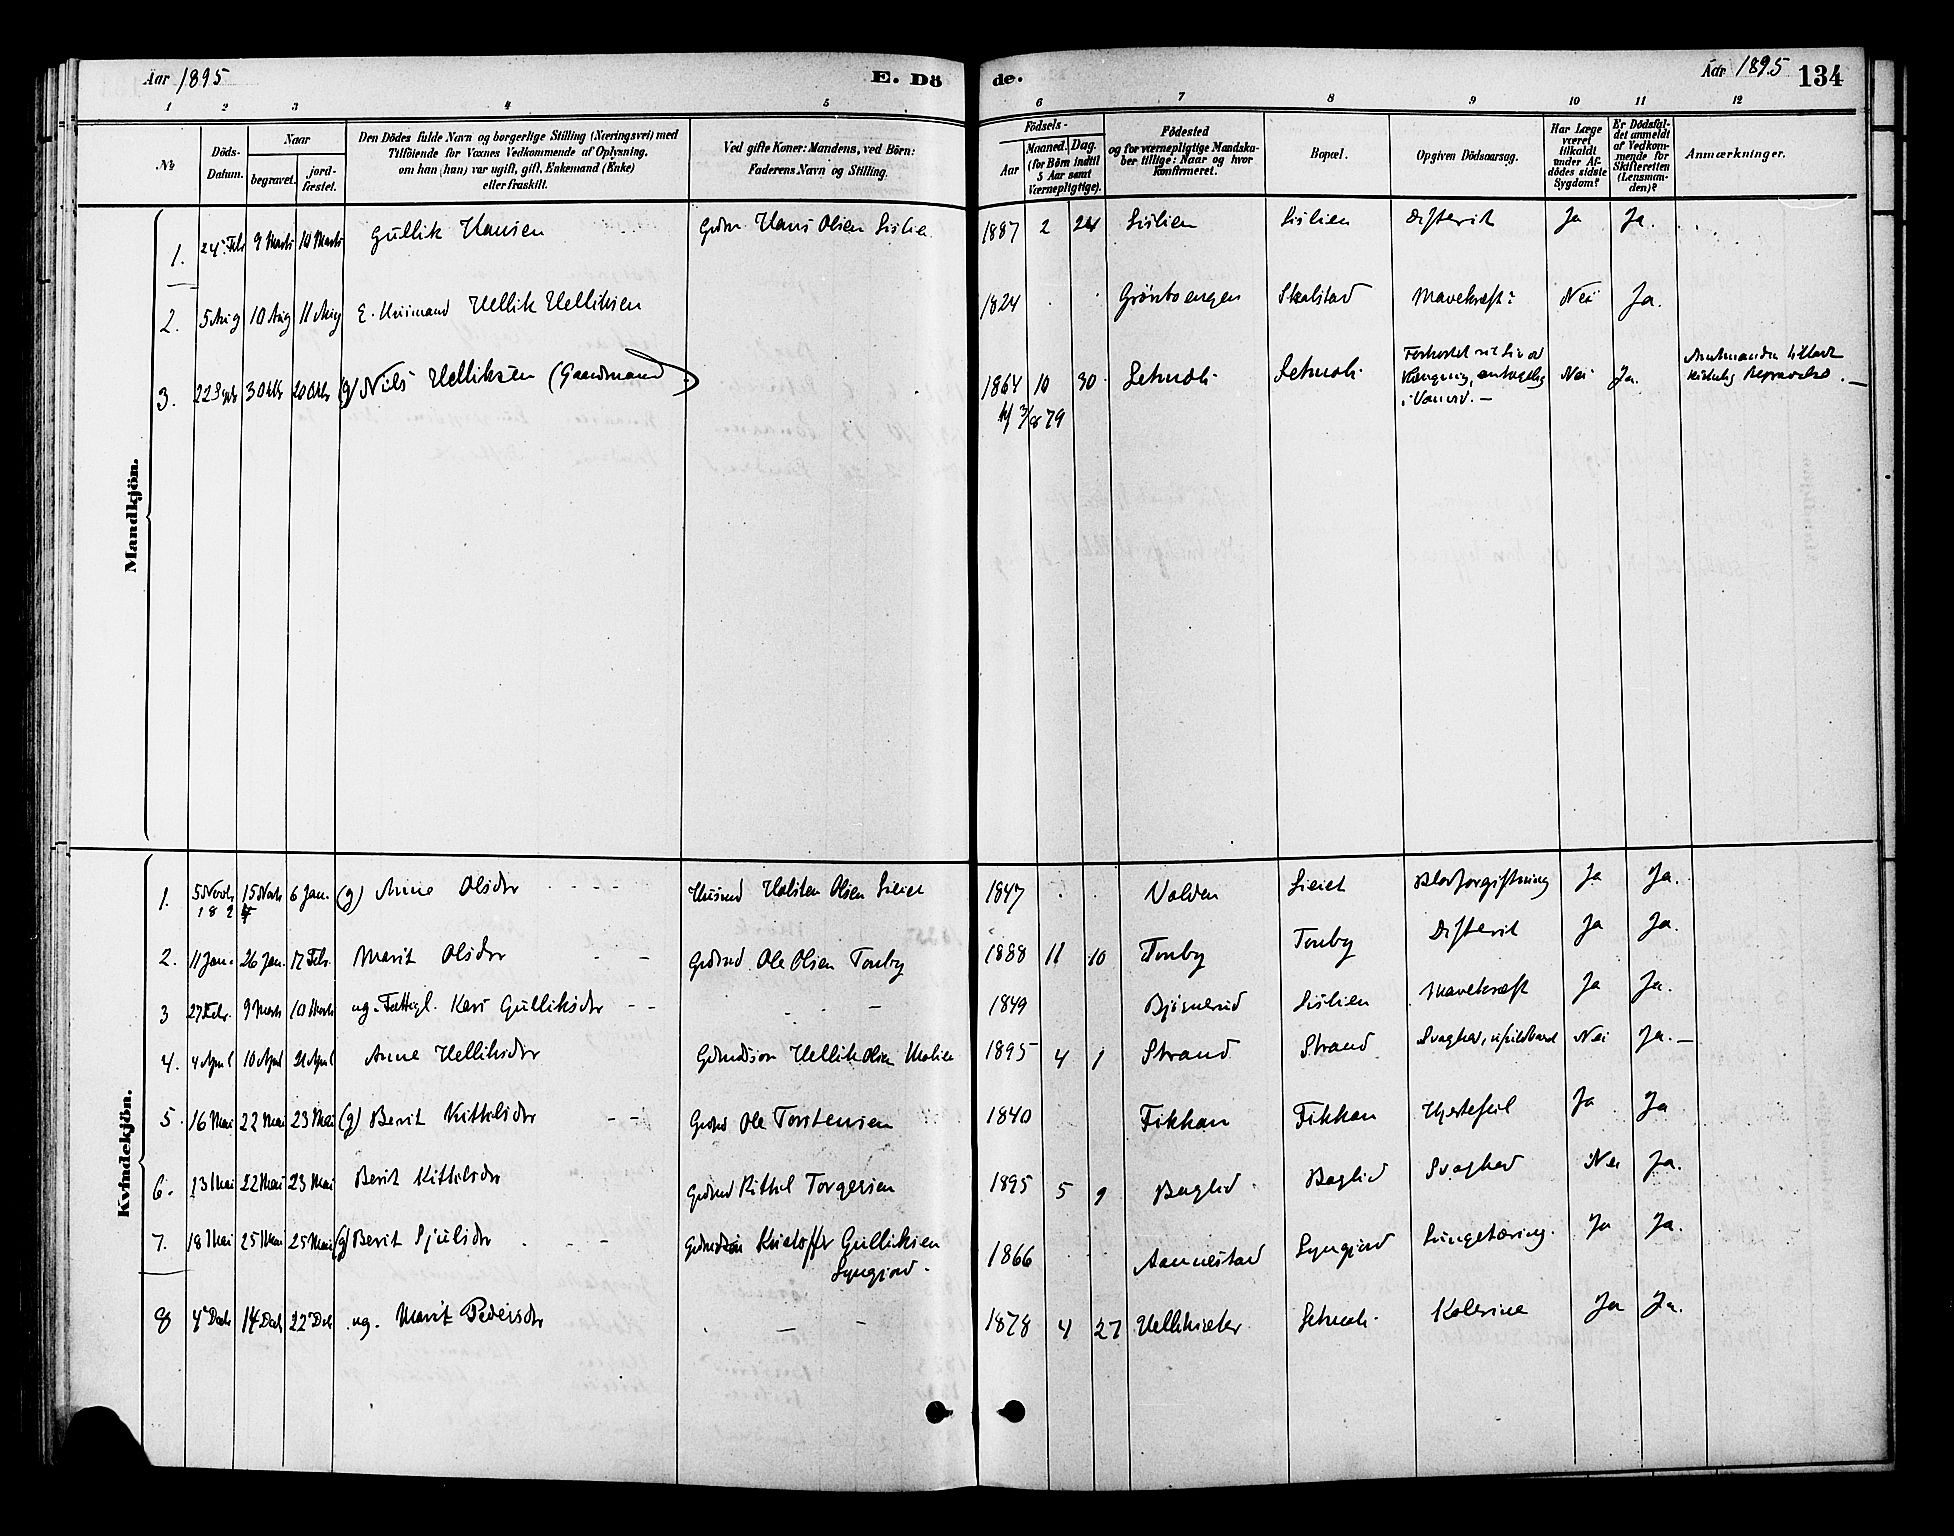 Aar 1895
E. Dö
de.
Aar 1895
134
1 2 3 4 5 6 7 8 9 10 11 12
No
Döds-
Datum.
Naar
begravet.
jord-
fæstet.
Den Dödes fulde Navn og borgerlige Stilling (Næringsvei) med
Tilföiende for Voxnes Vedkommende af Oplysning,
om han (hun) var ugift, gift, Enkemand (Enke)
eller fraskilt.
Ved gifte Koner: Mandens, ved Börn:
Faderens Navn og Stilling.
Födsels-
Aar
Maaned.
Dag.
(for Börn indtil
5 Aar samt
Værnepligtige).
Födested
og for værnepligtige Mandska-
ber tillige: Naar og hvor
konfirmeret.
Bopæl.
Opgiven Dödsaarsag.
Har Læge
været
tilkaldt
under Af-
dödes sidste
Sygdom?
Er Dödsfal-
det anmeldt
af Vedkom-
mende for
Skifteretten
(Lensman-
den)?
Anmærkninger.
Mandkjön.
1. 24 Febr 9 Marts 10 Marts Gullik Hansen Hans Olsen Lislien 1887 2 24 Lislien Lislien Difterit Ja Ja.
2. 5 Aug 10 Aug 11 Aug E. Husmand Hellik Helliksen 1824 Grönboengen Skolstad Mavekræft? Nei Ja.
3. 22 3 Oktb 20 Oktb (g) Niels Helliksen (Gaardmand) 1864 10 30 Nei Ja.
1879
Kvindekjön.
1. 5 Novb 15 Novb 6 Jan. (g) Anne Olsdtr Husmd Holsten Olsen Lieiet 1847 Volden Lieiet Blodforgiftning Ja Ja.
189 4
2. 11 Jan. 26 Jan. 17 Febr. Marit Olsdtr Ole Olsen Tonby 1888 11 10 Tonby Tonby Difterit Ja Ja.
3 27 Febr. 9 Marts 10 Marts ug. Fattigl. Kari Gulliksdtr 1849 Björnerud Lislien Mavekræft Ja Ja.
4. 4 April 10 April 21 April Anne Helliksdtr Hellik Olsen 1895 4 1 Strand Strand Svaghed, Nei Ja.
5. 16 Mai 22 Mai 23 Mai (g) Berit Kittilsdtr Ole Torstensen 1840 Fikkan Fikkan Hjertefeil Ja Ja
6. 13 Mai 22 Mai 23 Mai Berit Kittilsdtr Kittil Torgersen 1895 5 9 Baglid Baglid Svaghed Nei Ja.
7. 18 Mai 25 Mai 25 Mai (g) Berit Sjulsdtr Kristoffer Gulliksen 1866 Aannestad Lyngjord Lungetæring. Ja Ja.
Lyngjord.
8 4 Decb 14 Decb 22 Decb ug. Marit Pedersdtr 1878 4 27 Kolerine Ja Ja.